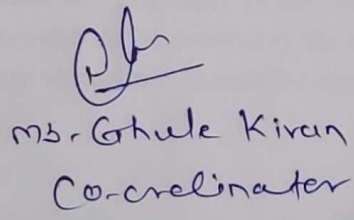 Ms. Ghule Kiran
Co-ordinator